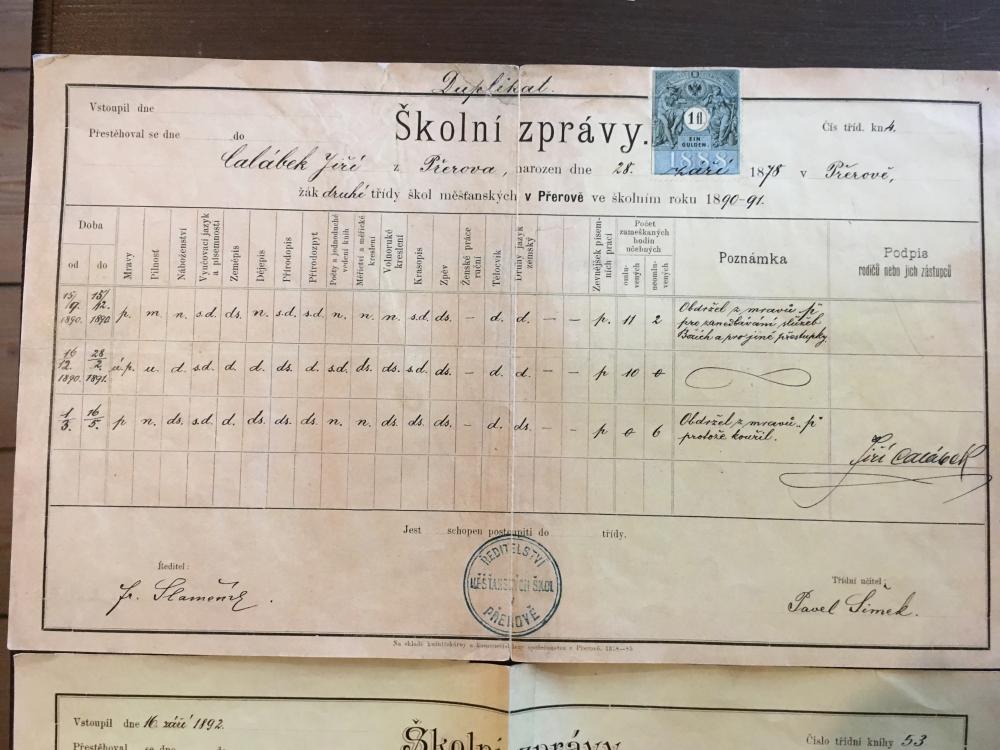 Duplikát.
Vstoupil dne
Přestěhoval se dne do
Školní zprávy.
Čís tříd. kn 4.
1 fl
EIN
GULDEN.
1888
Calábek Jiří z Přerova, narozen dne 28. září 1878 v Přerově,
žák druhé třídy škol měšťanských v Přerově ve školním roku 1890-91.
Doba
od
do
Mravy
Pilnost
Náboženství
Vyučovací jazyk a písemnosti
Zeměpis
Dějepis
Přírodopis
Přírodozpyt
Počty s jednoduché vedení knih
Měřictví a měřické kreslení
Volnoruké kreslení
Krasopis
Zpěv
Ženské práce ruční
Tělocvik
Druhý jazyk zemský
Zevnějšek písemních prací
Počet zameškaných hodin učebných
omluvených
neomluvených
Poznámka
Podpis
rodičů nebo jich zástupců
15/9. 1890. 15/12. 1890. p. m. n. s.d. ds. n. s.d. s.d. n. n. n. s.d. ds. – d. d. – – p. 11 2 Obdržel z mravů "p"
pro zanedbávání služeb
Božích a pro jiné přestupky
16/12. 1890. 28/2. 1891. ú.p. u. d. s.d. d. d. ds. d. s.d. ds. ds. s.d. ds. – d. d. – – p 10 0
1/3. 16/5. p n. ds. s.d. d. ds. ds. ds. n. n. ds. ds. ds. – d. ds. – – p 0 6 Obdržel z mravů "p"
protože kouřil.
Jiří Calábek
Jest schopen postoupiti do třídy.
ŘEDITELSTVÍ
MĚŠŤANSKÝCH ŠKOL
V
PŘEROVĚ
Ředitel:
Fr. Slaměník.
Třídní učitel:
Pavel Šimek.
Na skladě knihtiskárny a kamenotiskárny společenstva v Přerově.
Vstoupil dne 16. září 1892.
Přestěhoval se dne do
Školní zprávy
Číslo třídní knihy 53